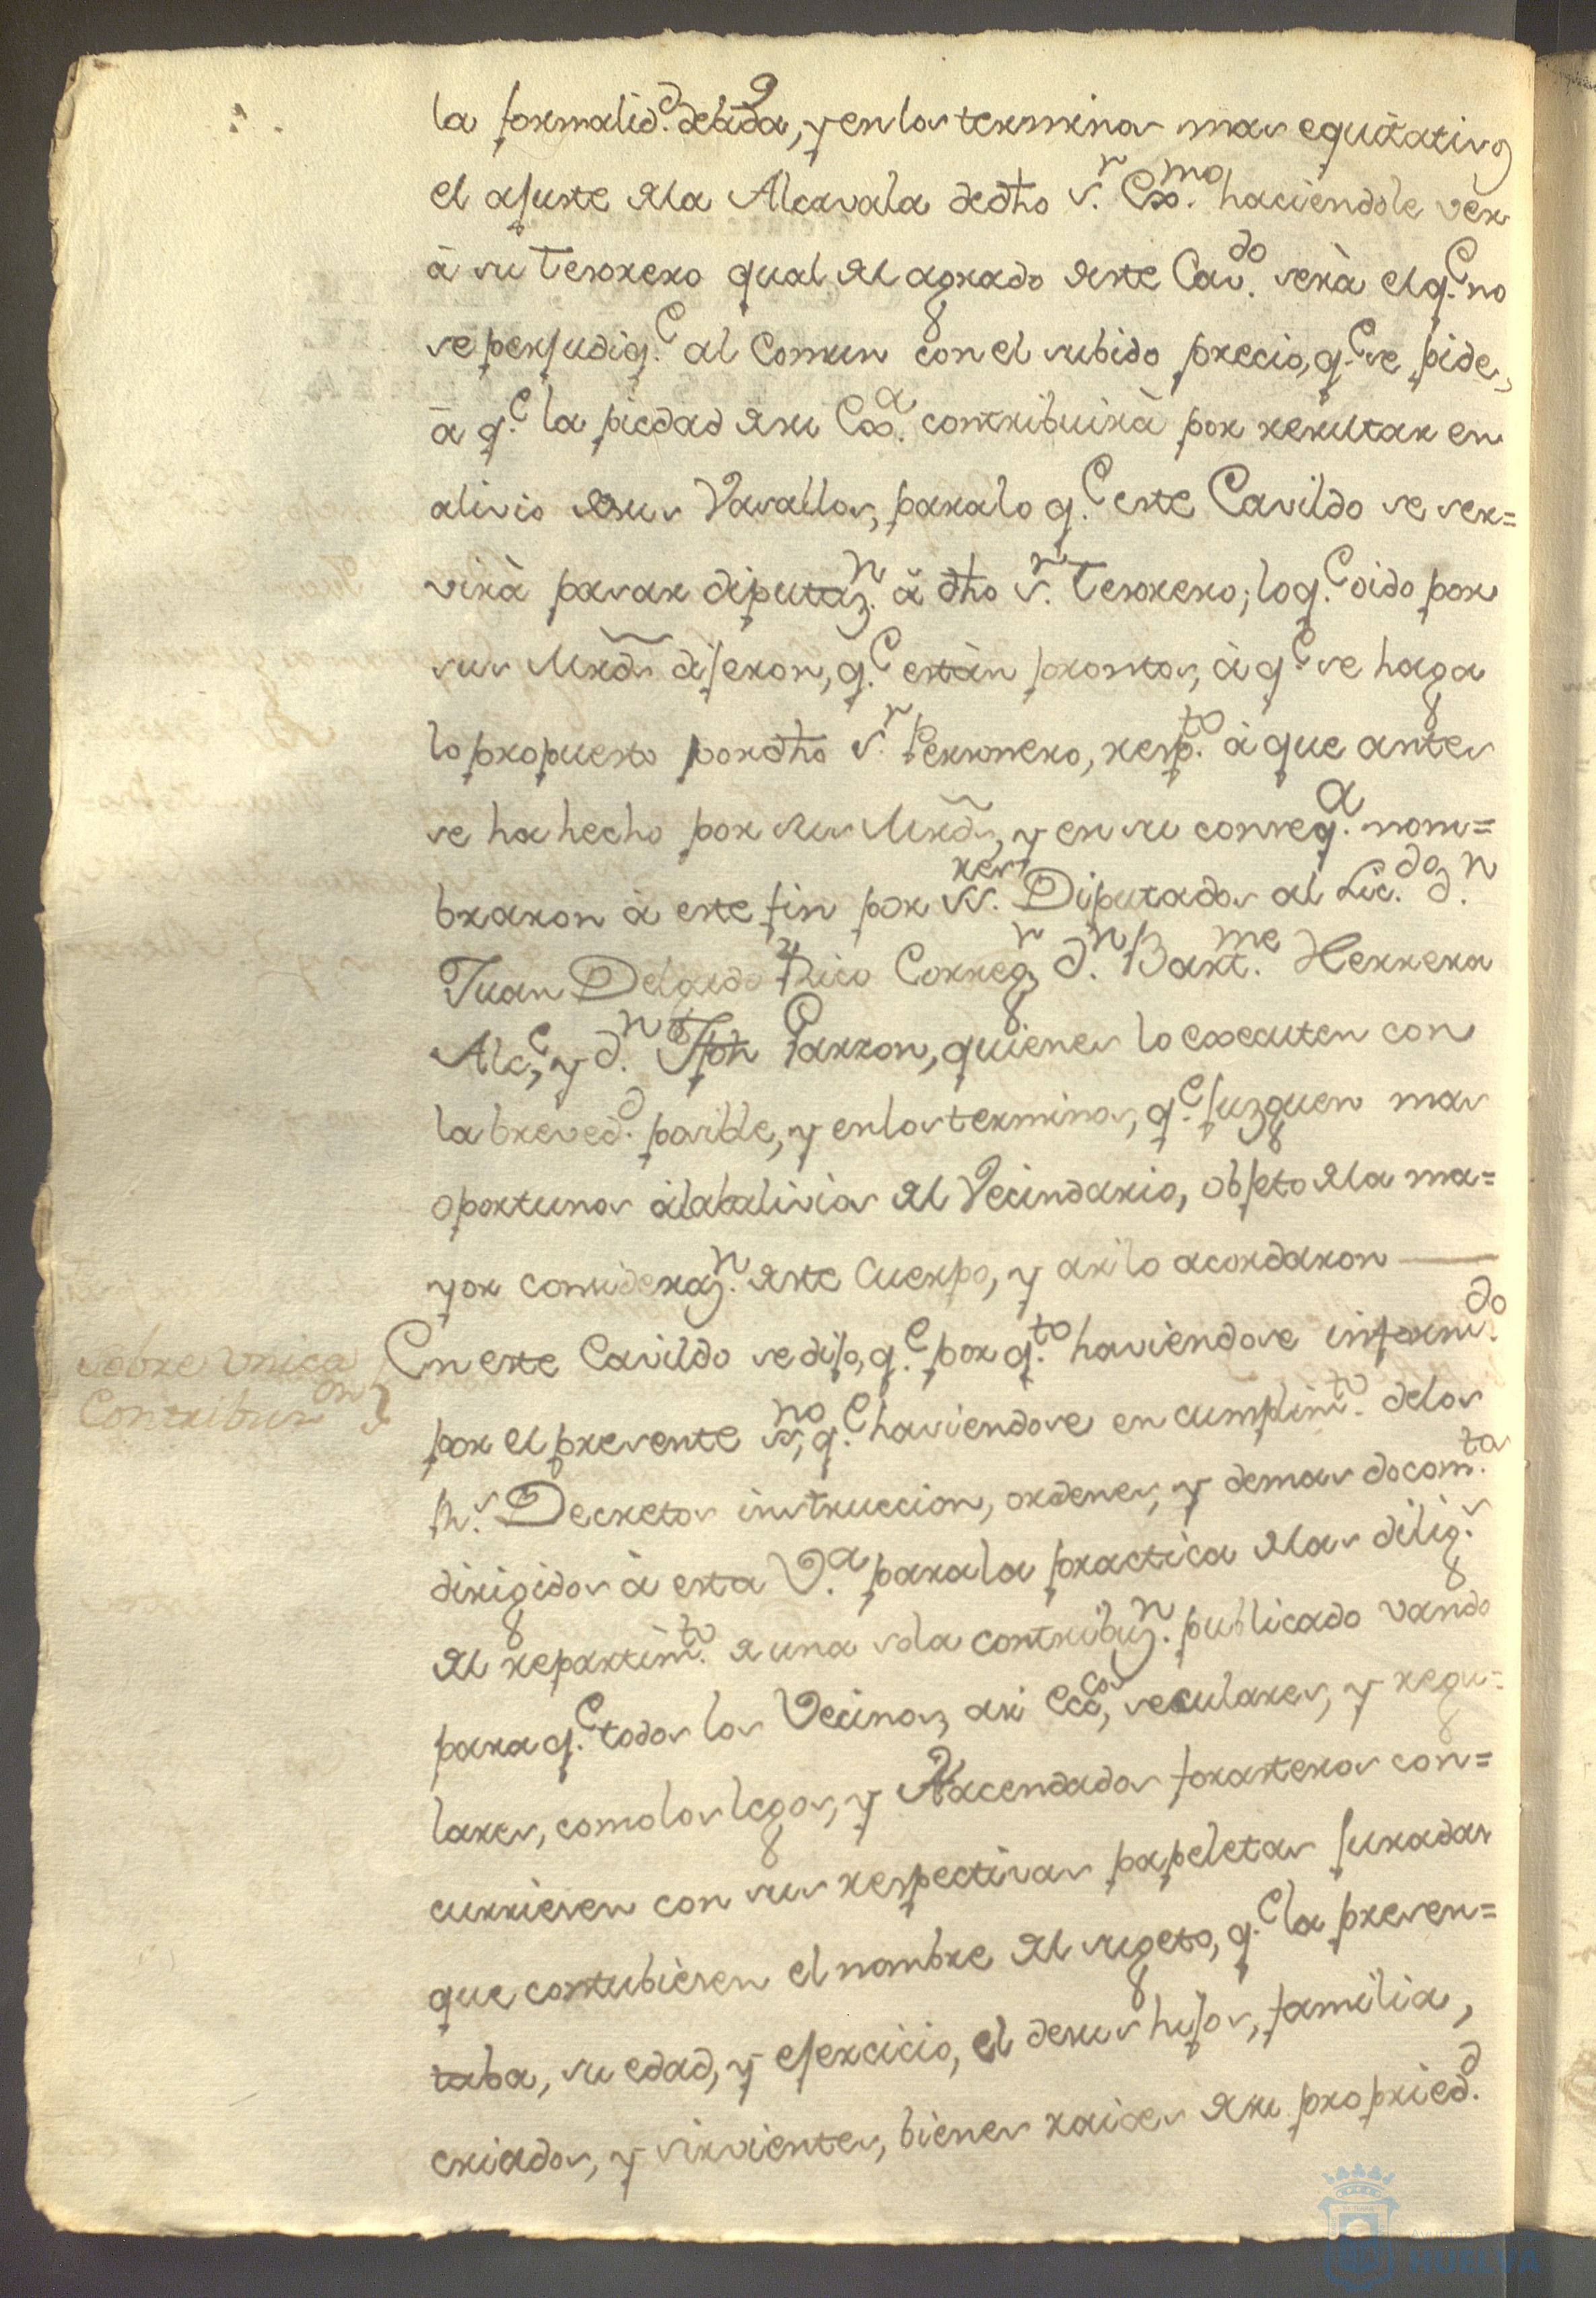 la formalid.d debida, y en los terminos mas equitativos
el ajuste de la Alcavala de dho s.r Exmo. haciendole ver
à su tesorero qual del agrado de este Cav.do serà el q.e no
se perjudiq.e al Comun con el subido precio, q.e se pide,
à q.e la piedad de su Exa. contribuirà por resultar en
alivio de sus Vasallos, para lo q.e este Cavildo se ser=
virà pasar diputaz.n à dho s.r Tesorero; lo q.e oido por
sus Mrds dijeron, q.e estàn prontos, à q.e se haga
lo propuesto por dho s.r Personero, resp.to à que antes
se ha hecho por sus Mrds, y en su conseq.a nom=
braron à este fin por ss.res Diputados al Lic.do d.n
Juan Delgado Rico Correg.r d.n Bart.me Herrera
Alc.e, y d.n Jph Garzon, quienes lo executen con
la breved.d posible, y en los terminos, q.e juzguen mas
oportunos al alivio del Vecindario, objeto de la ma=
yor consideraz.n de este Cuerpo, y asi lo acordaron
Sobre Unica
Contribuz.on
En este Cavildo se dijo, q.e por q.to haviendose inform.do
por el presente ss.no, q.e haviendose en cumplim.to de los
R.s Decretos instruccion, ordenes, y demas docom.tos
dirigidos à esta V.a para la practica de las dilig.s
del repartim.to de una sola contribuz.n publicado vando
para q.e todos los Vecinos, asi Ecc.cos, seculares, y regu=
lares, como los legos, y Hacendados forasteros con=
curriesen con sus respectivas papeletas juradas
que contubiesen el nombre del sugeto, q.e la presen=
taba, su edad, y ejercicio, el de sus hijos, familia,
criados, y sirvientes, bienes raices de su propried.d
HUELVA